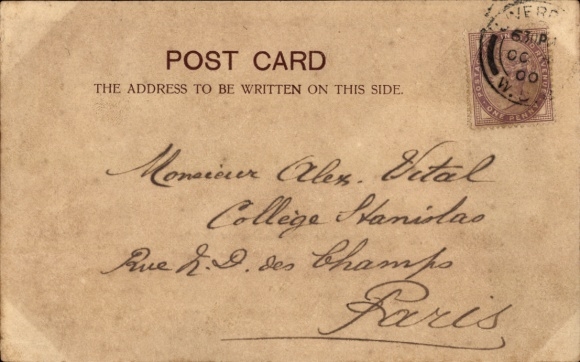 POST CARD
THE ADDRESS TO BE WRITTEN ON THIS SIDE.
Monsieur Alex. Vital
Collège Stanislas
Rue N. D. des Champs
Paris
ONE PENNY
OC
00
W.